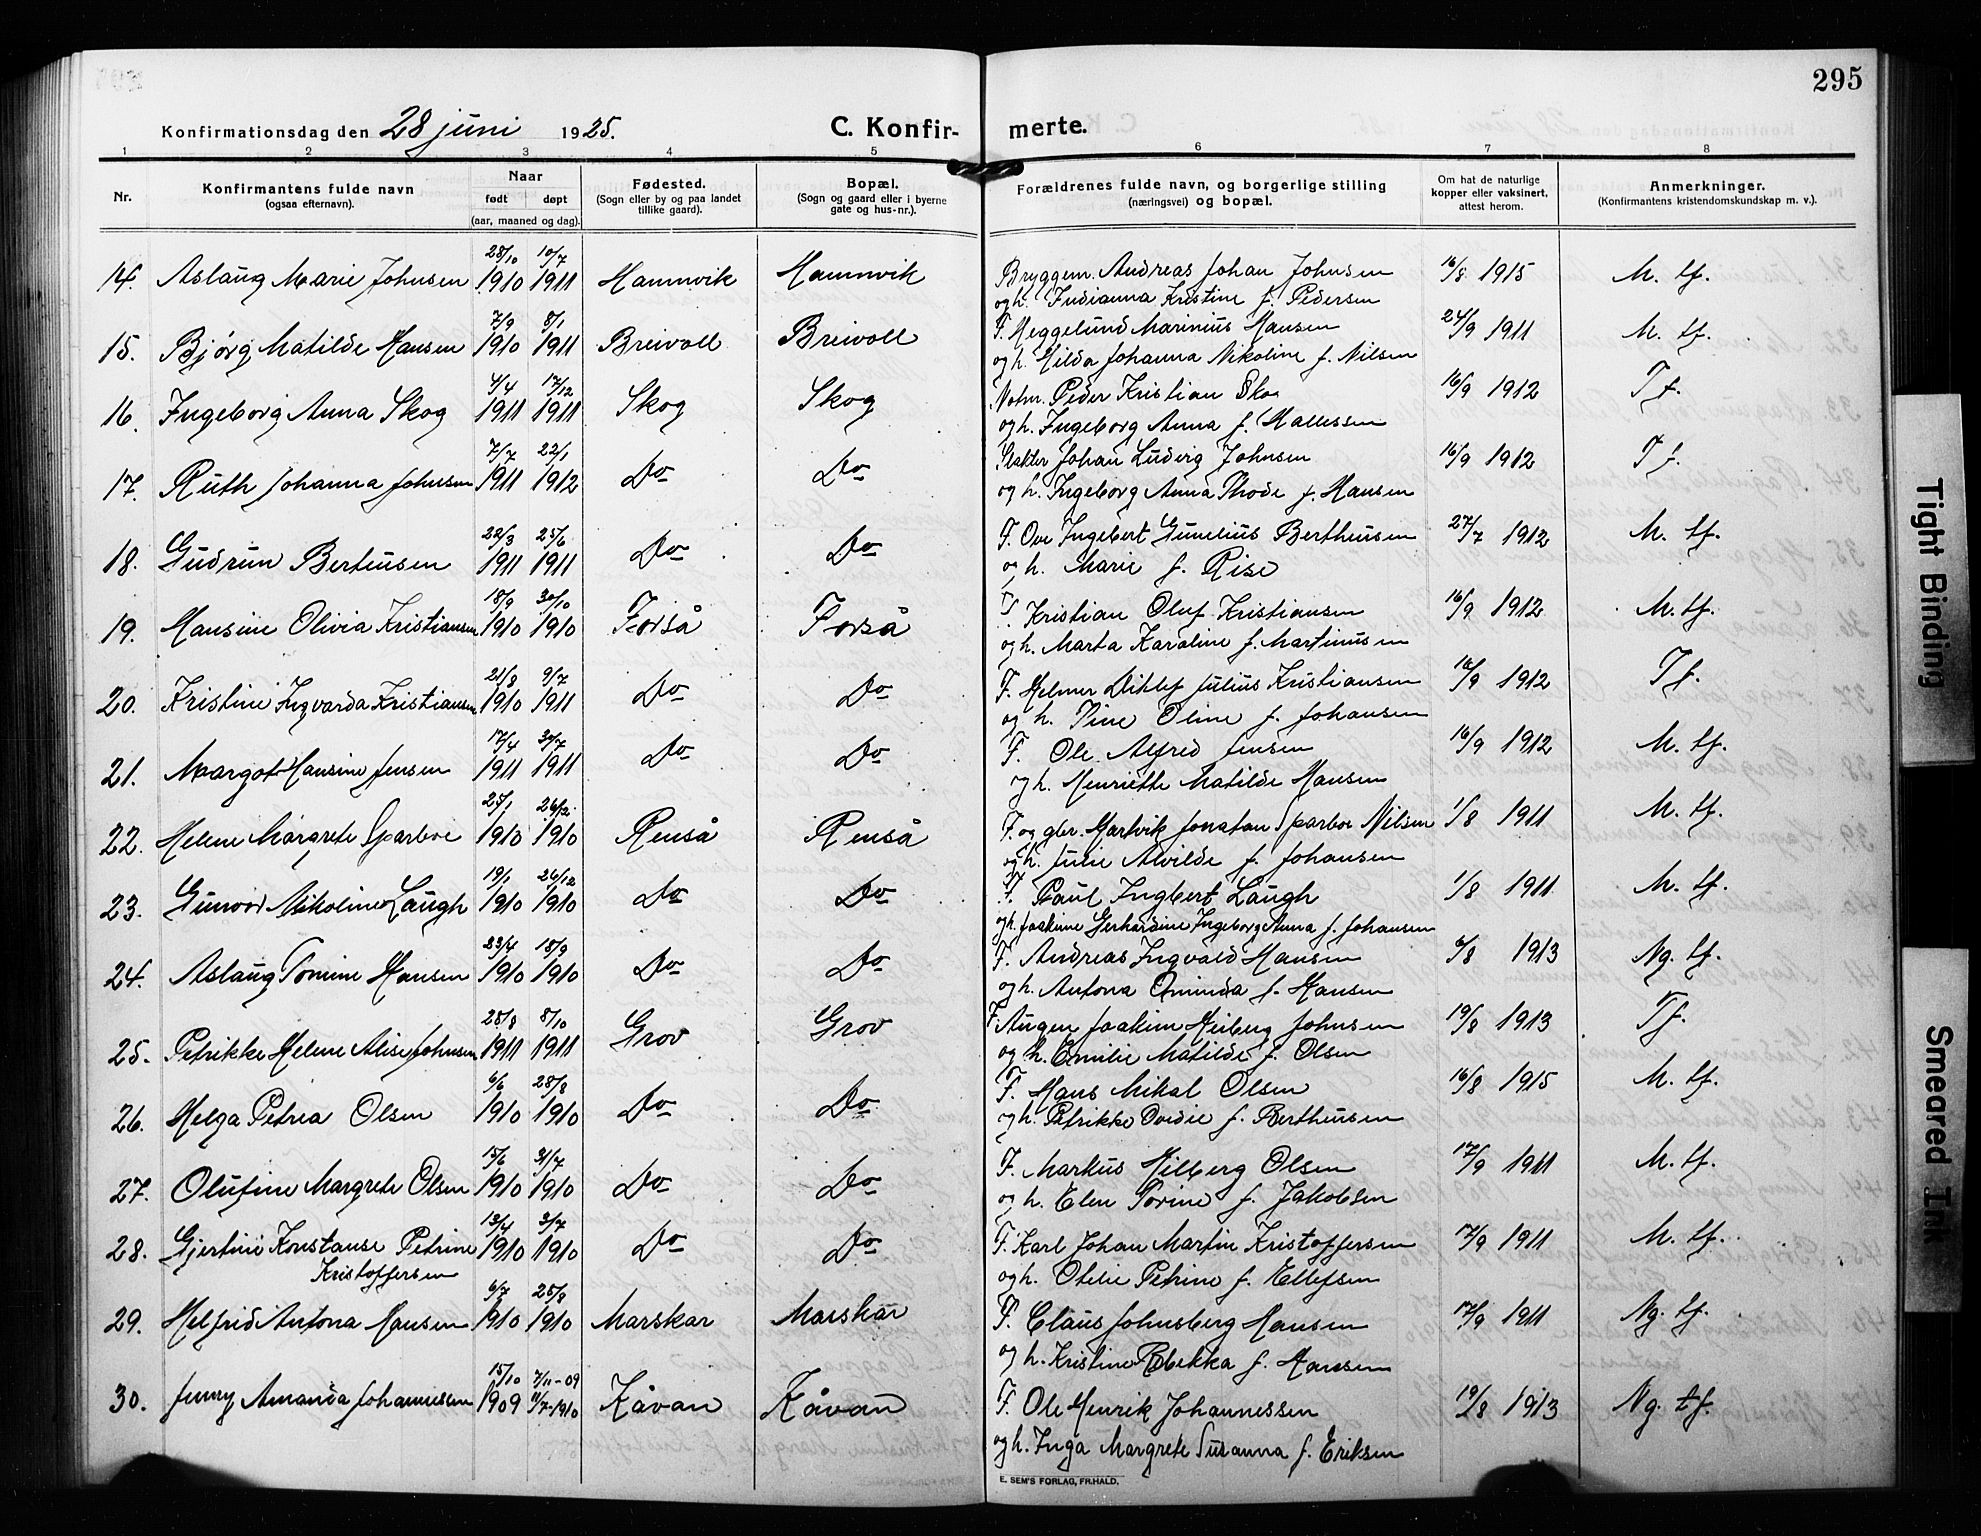 295
Konfirmationsdag den 28 juni 1925.
C. Konfir- merte.
1 2 3 4 5 6 7 8
Nr.
Konfirmantens fulde navn
(ogsaa efternavn).
Naar
født døpt
(aar, maaned og dag).
Fødested.
(Sogn eller by og paa landet
tillike gaard).
Bopæl.
(Sogn og gaard eller i byerne
gate og hus-nr.).
Forældrenes fulde navn, og borgerlige stilling
(næringsvei) og bopæl.
Om hat de naturlige
kopper eller vaksinert,
attest herom.
Anmerkninger.
(Konfirmantens kristendomskundskap m. v.).
14. Aslaug Marie Johnsen 28/10 1910 10/7 1911 Hamnvik Hamnvik Bryggem. Andreas Johan Johnsen 16/8 1915 M. tf.
og h. Indianna Kristine f. Pedersen
15. Bjørg Matilde Hansen 7/9 1910 8/1 1911 Breivoll Breivoll F. Heggelund Marinius Hansen 24/9 1911 M. tf.
og h. Hilda Johanna Nikoline f. Nilsen
16. Ingeborg Anna Skog 4/4 1911 17/12 1911 Skog Skog Peder Kristian Skog 16/9 1912 T f.
og h. Ingeborg Anna f. Hallessen
17. Ruth Johanna Johnsen 7/7 1911 22/1 1912 Do Do Slakter Johan Ludvig Johnsen 16/9 1912 T f.
og h. Ingeborg Anna Thode f. Hansen
18. Gudrun Berteusen 22/3 1911 25/6 1911 Do Do F. Ove Ingebert Gunelius Bertheusen 27/7 1912 M. tf.
og h. Marie f. Rise
19. Hansine Olivia Kristiansen 18/9 1910 30/10 1910 Forså Forså F. Kristian Oluf Kristiansen 16/9 1912 M. tf.
og h. Marta Karoline f. Martinussen
20. Kristine Ingvarda Kristiansen 21/8 1910 9/7 1911 Do Do F. Helmer Ditlef Julius Kristiansen 16/9 1912 T f.
og h. Tine Oline f. Johansen
21. Margot Hansine Jensen 17/4 1911 30/7 1911 Do Do F. Ole Alfred Jensen 16/9 1912 M. tf.
og h. Henriette Matilde Hansen
22. Helene Margrete Sparboe 25/1 1910 26/2 1910 Renså Renså F. og gbr. Hartvik Jonatan Sparboe Nilsen 1/8 1911 M. tf.
og h. Julie Alvilde f. Johansen
23. Gunvor Nikoline Laugh 19/1 1910 26/12 1910 Do Do F. Paul Ingbert Laugh 1/8 1911 M. tf.
og h. Joakime Gerhardine Ingeborg Anna f. Johansen
24. Aslaug Tomine Hansen 23/4 1910 18/9 1910 Do Do F. Andreas Ingvald Hansen 6/8 1913 Ng. tf.
og h. Antona Ominda f. Hansen
25. Petrikke Helene Alise Johnsen 28/8 1911 8/10 1911 Grov Grov F. Angen Joakim Heiberg Johnsen 19/8 1913 T f.
og h. Emilie Matilde f. Olsen
26. Helga Petrea Olsen 6/6 1910 28/8 1910 Do Do F. Hans Mikal Olsen 16/8 1915 M. tf.
og h. Petrikke Ovidie f. Bertheusen
27. Olufine Margrete Olsen 15/6 1910 31/7 1910 Do Do F. Markus Hilberg Olsen 17/9 1911 M. tf.
og h. Elen Torine f. Jakobsen
28. Gjertine Konstanse Petrine 13/4 1910 3/7 1910 Do Do F. Karl Johan Martin Kristoffersen 17/9 1911 M. tf.
Kristoffersen og h. Otelie Petrine f. Ellefsen
29. Helfrid Antona Hansen 6/7 1910 28/8 1910 Marskar Marskar F. Claus Johnsberg Hansen 17/9 1911 Ng. tf.
og h. Kristine Rebekka f. Hansen
30. Jenny Amanda Johannessen 15/10 1909 7/11-09 11/7-1910 Kåvan Kåvan F. Ole Henrik Johannessen 19/8 1913 Ng. tf.
og h. Inga Margrete Susanna f. Eriksen
E. SEM'S FORLAG, FR.HALD.
Tight Binding
Smeared Ink